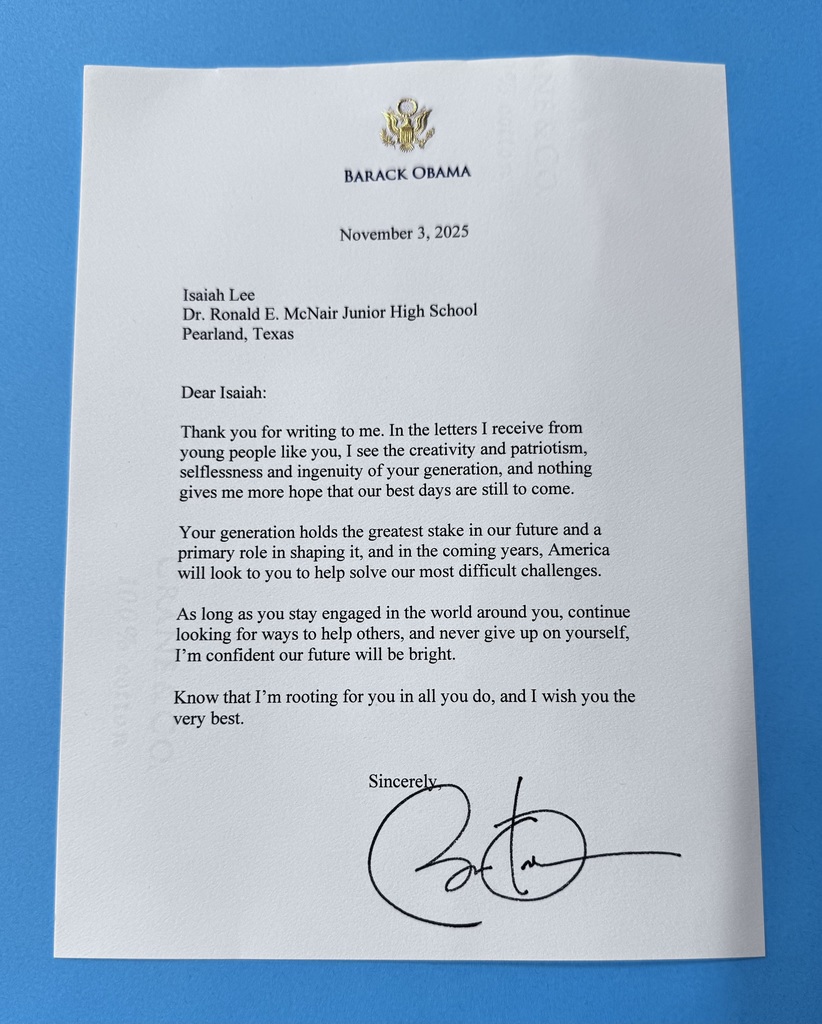 BARACK OBAMA
November 3, 2025
Isaiah Lee
Dr. Ronald E. McNair Junior High School
Pearland, Texas
Dear Isaiah:
Thank you for writing to me. In the letters I receive from
young people like you, I see the creativity and patriotism,
selflessness and ingenuity of your generation, and nothing
gives me more hope that our best days are still to come.
Your generation holds the greatest stake in our future and a
primary role in shaping it, and in the coming years, America
will look to you to help solve our most difficult challenges.
As long as you stay engaged in the world around you, continue
looking for ways to help others, and never give up on yourself,
I'm confident our future will be bright.
Know that I'm rooting for you in all you do, and I wish you the
very best.
Sincerely,
CRANE & CO
100% cotton